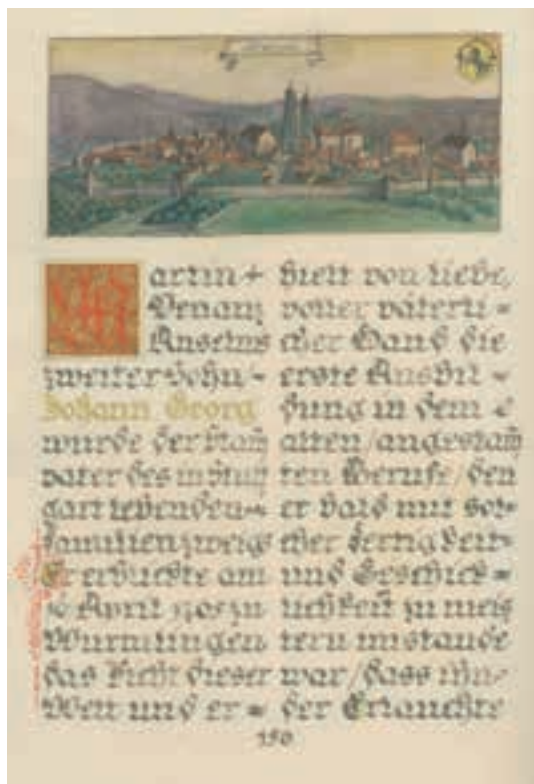 Martin +
Venanz
Anselms
zweiter Sohn -
Johann Georg
wurde der Stam̄
vater des in Stutt
gart lebenden -
Familienzweigs
Er erblickte am
April zu
Wurmlingen
das Licht dieser
Welt und er =
hielt von liebe,
voller väterli =
cher Hand die
erste Ausbil =
dung in dem
alten/angestam̄
ten Berufe/den
er bald mit sol=
cher Fertigkeit -
und Geschick =
lichkeit zu meis
tern imstande
war/dass ihn -
der Erlauchte
150